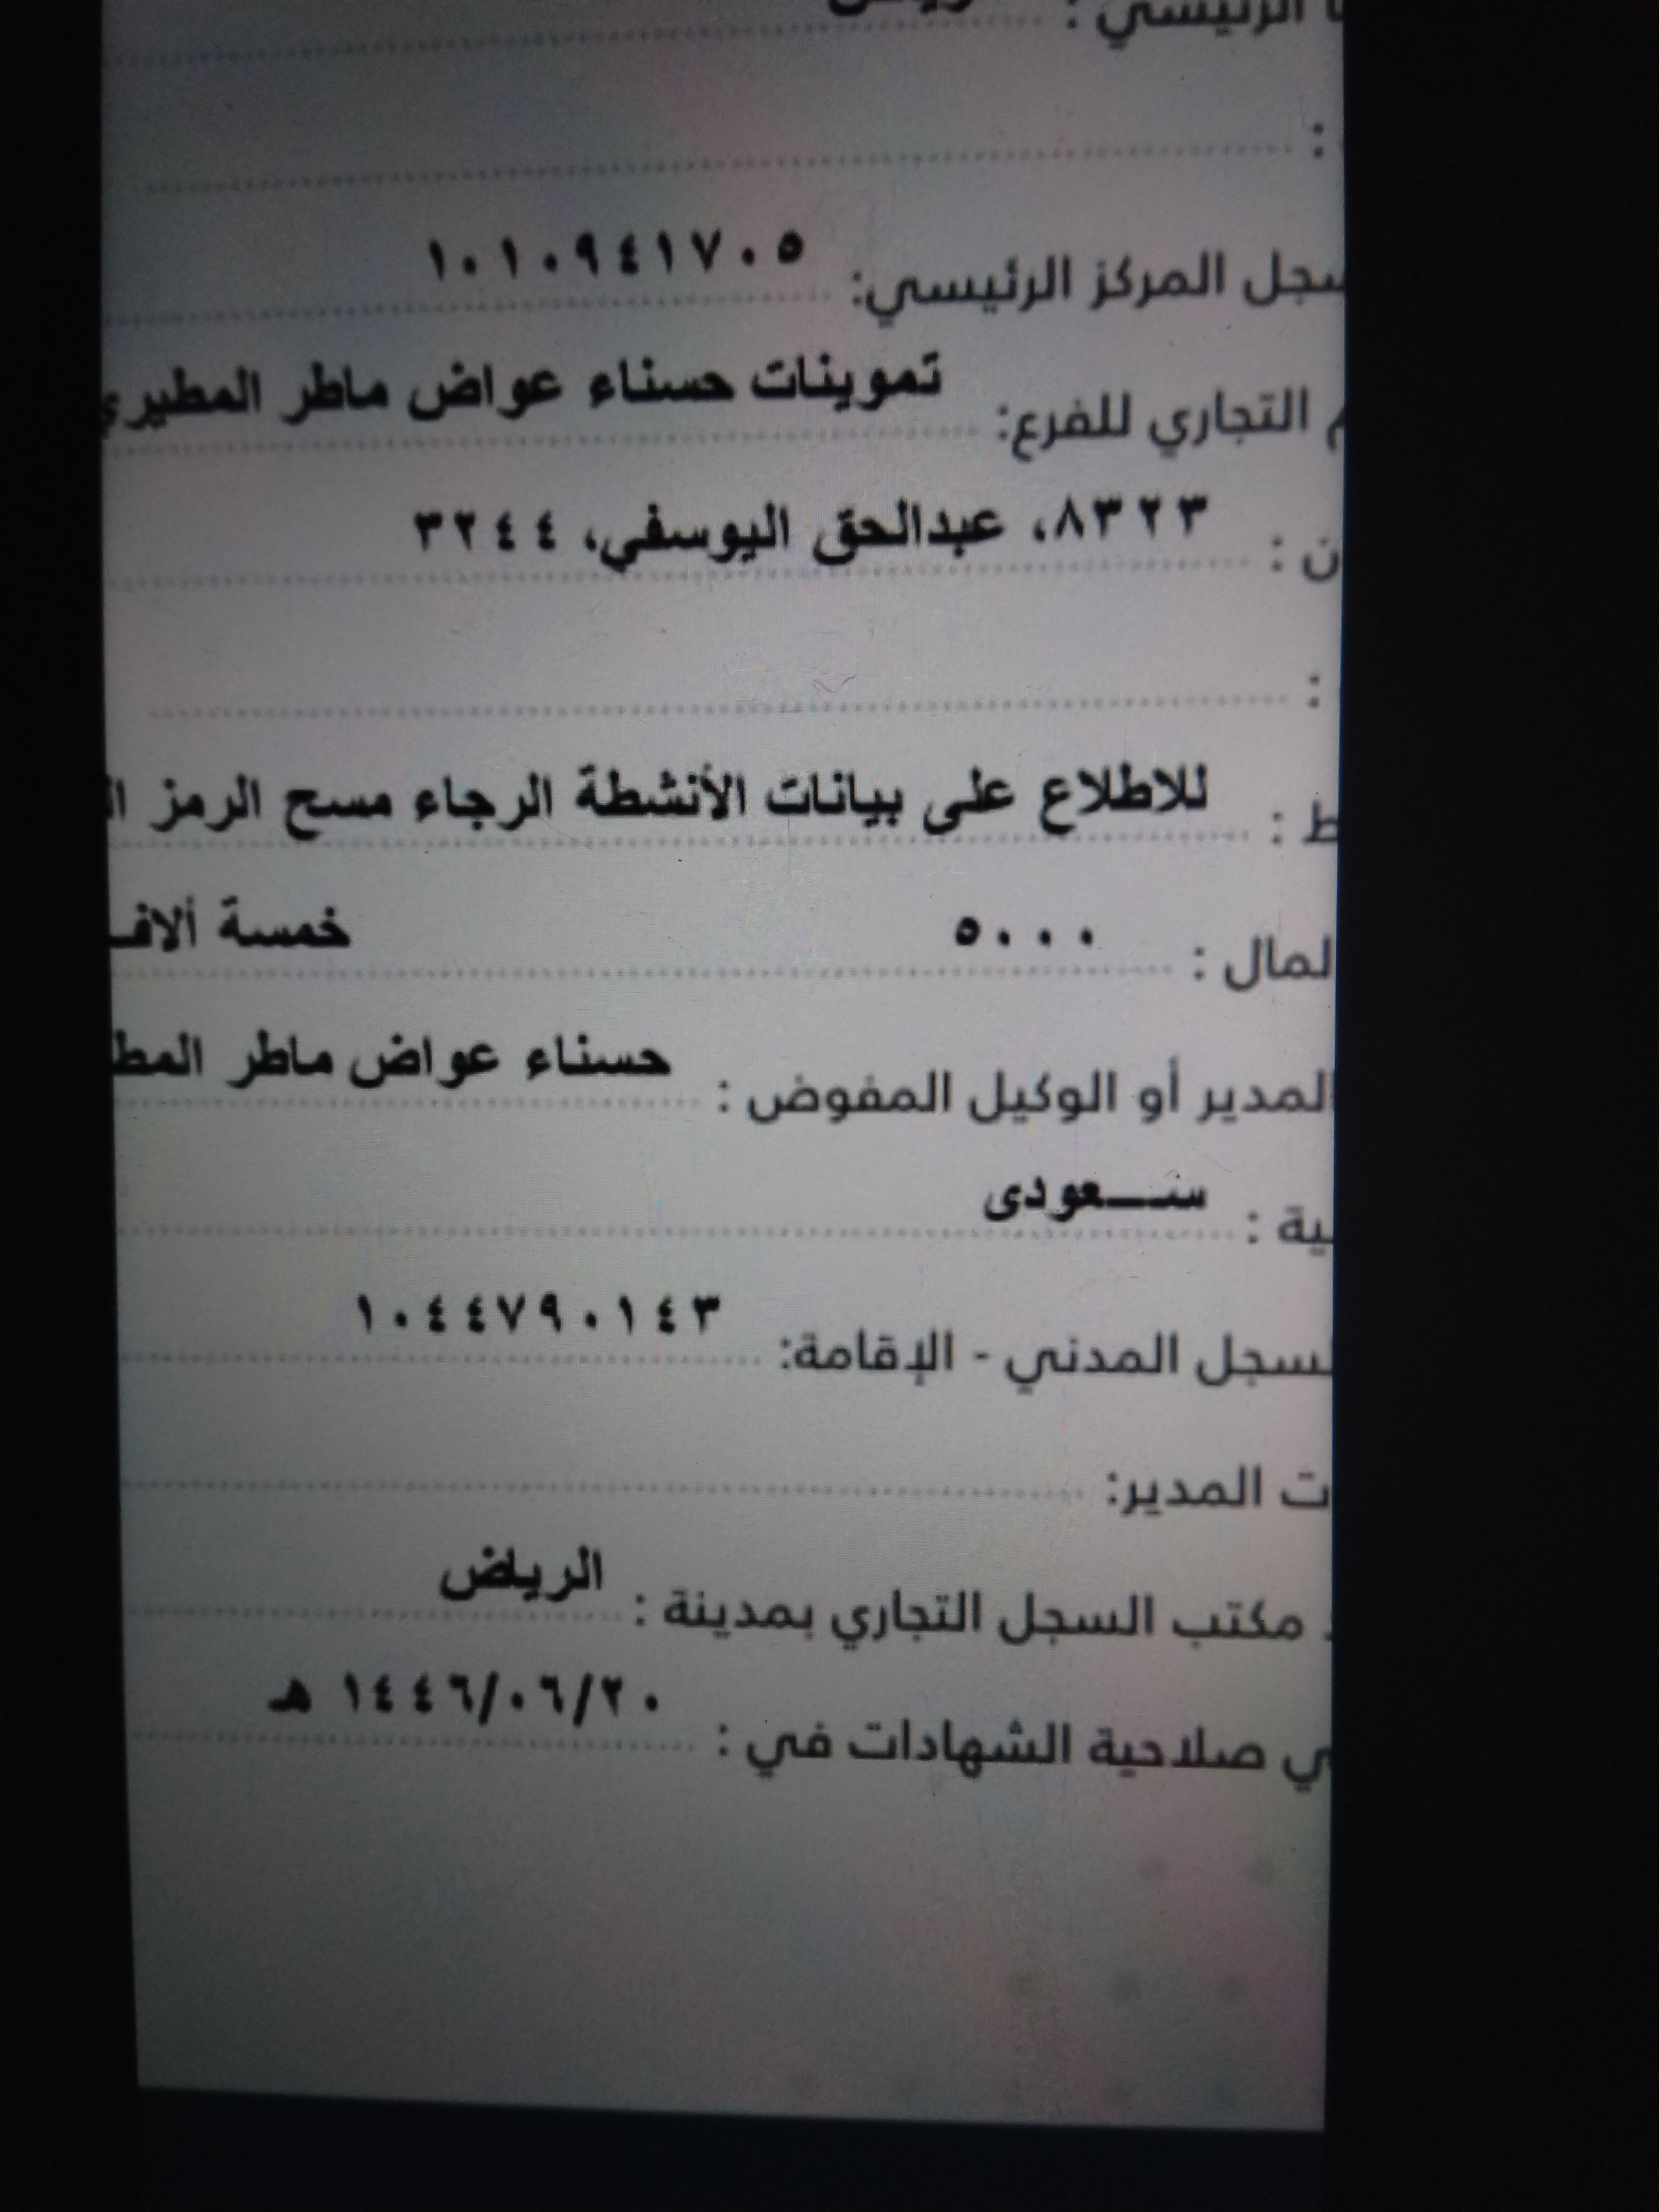 الرئيسي :
:
سجل المركز الرئيسي: ١٠١٠٩٤١٧٠٥
م التجاري للفرع: تموينات حسناء عواض ماطر المطيري
ن : ٨٣٢٣، عبدالحق اليوسفي، ٣٢٤٤
:
ط : للاطلاع على بيانات الأنشطة الرجاء مسح الرمز ا
لمال : ٥٠٠٠ خمسة ألاف
المدير أو الوكيل المفوض : حسناء عواض ماطر المط
ية : ســعودى
لسجل المدني - الإقامة: ١٠٤٤٧٩٠١٤٣
ت المدير:
مكتب السجل التجاري بمدينة : الرياض
ي صلاحية الشهادات في : ١٤٤٦/٠٦/٢٠ هـ